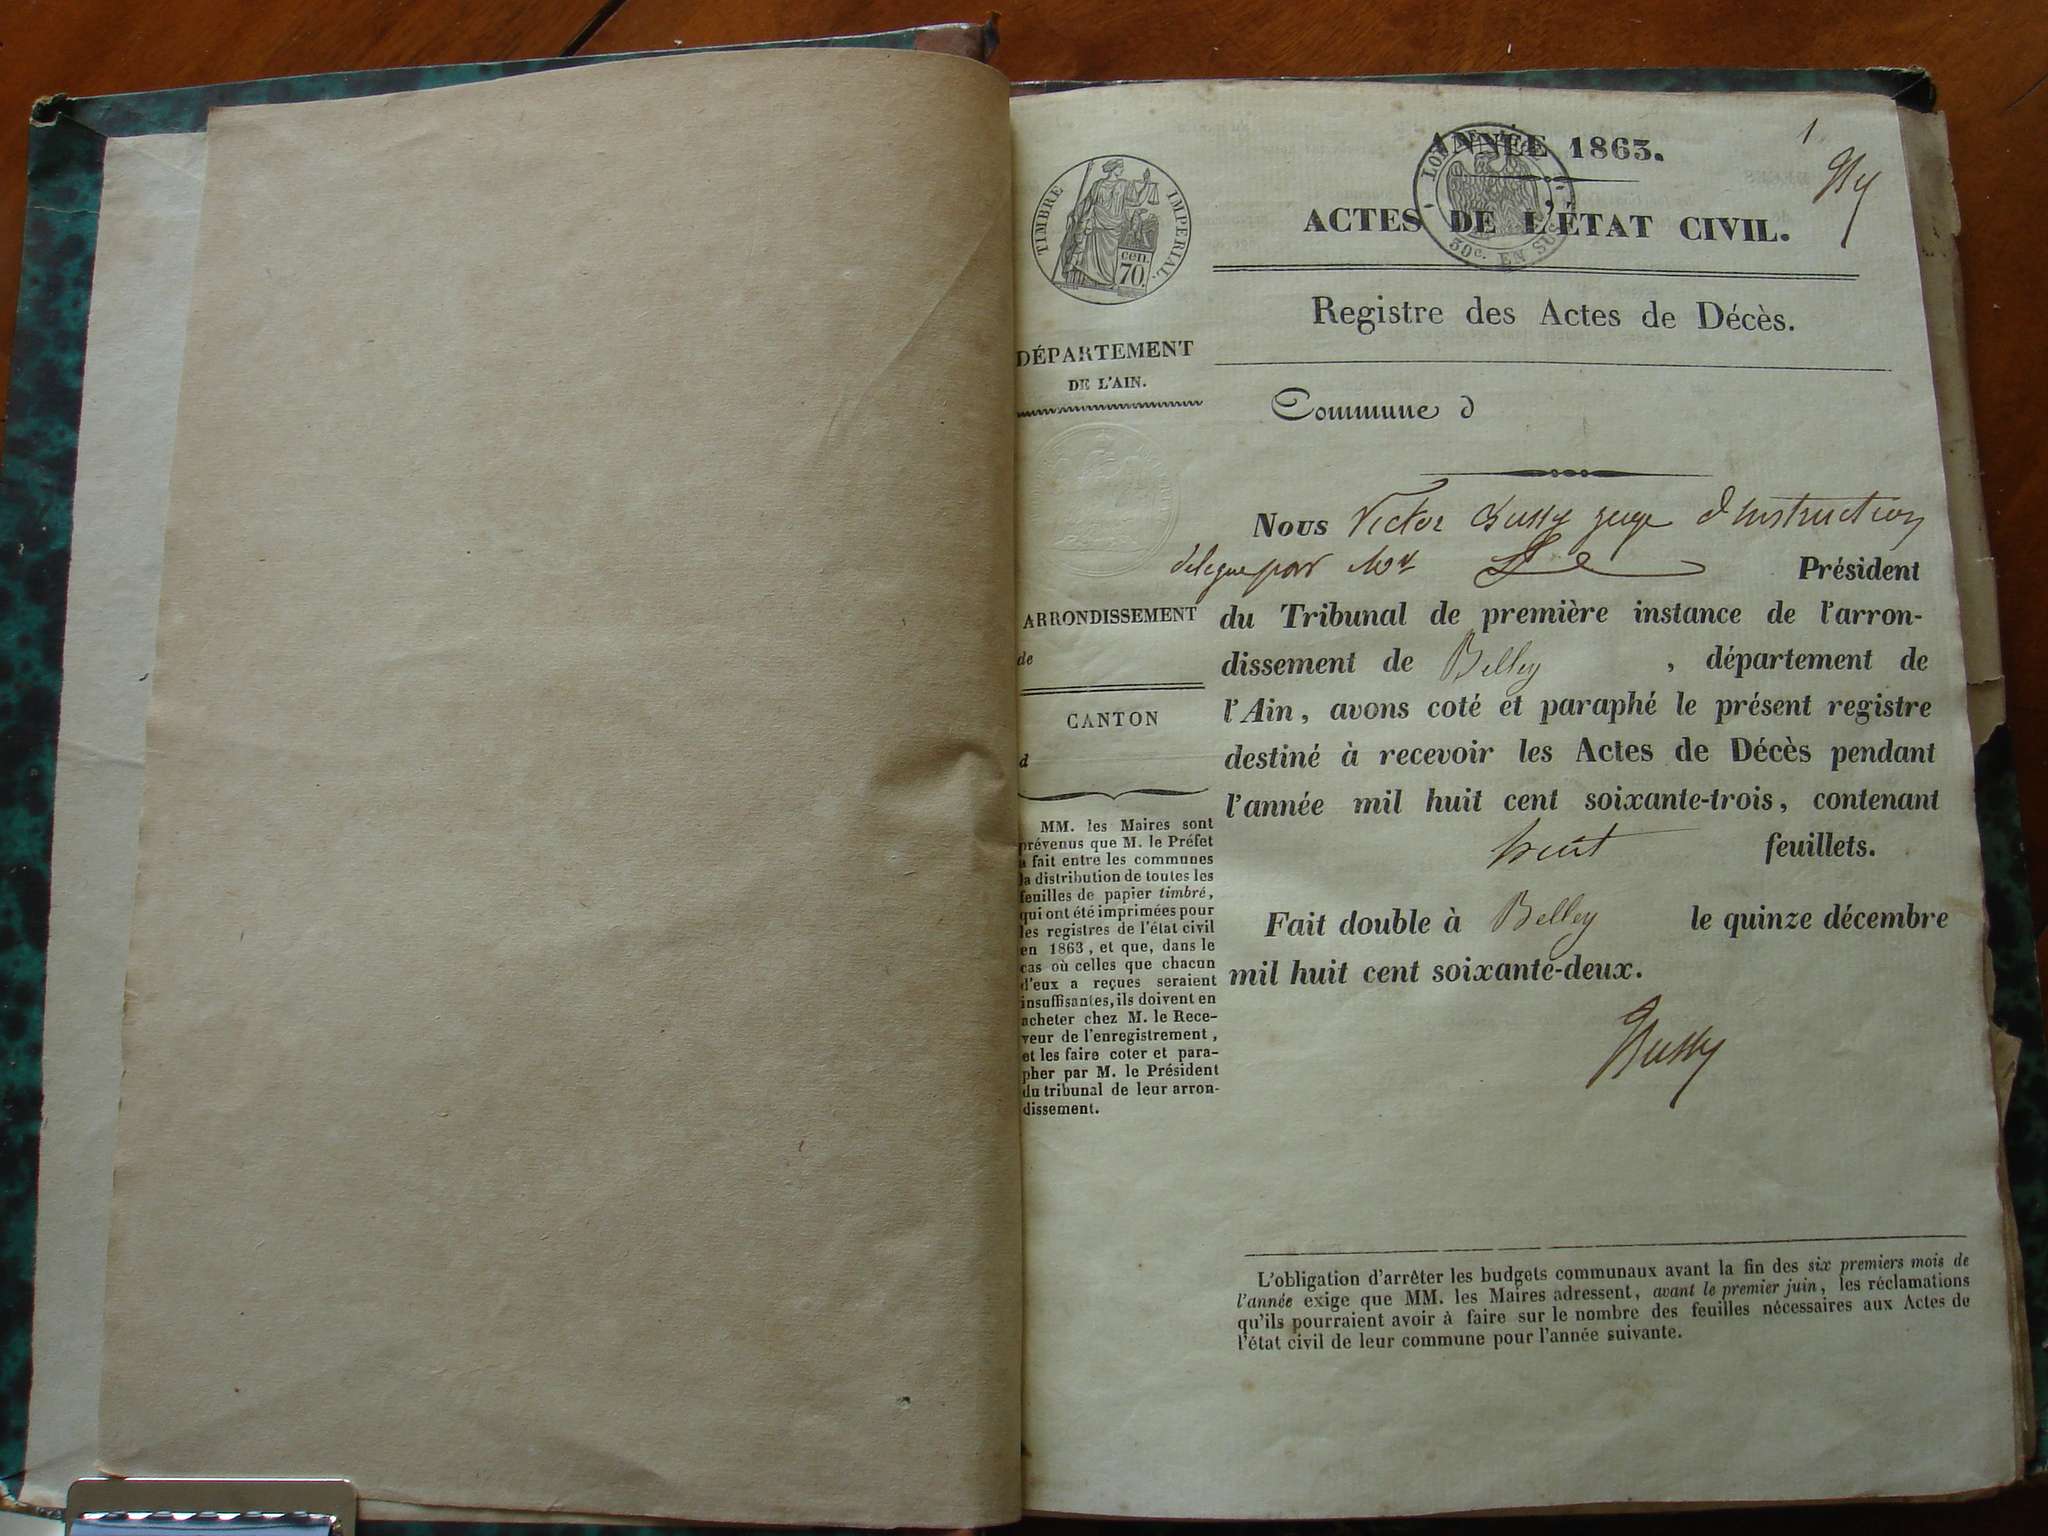 ANNÉE 1863.
1
ACTES DE L'ÉTAT CIVIL.
TIMBRE IMPÉRIAL.
cen.
70.
LOI
50c. EN SUS
Registre des Actes de Décès.
DÉPARTEMENT
DE L'AIN.
Commune d
ARRONDISSEMENT
de
CANTON
d
MM. les Maires sont
prévenus que M. le Préfet
a fait entre les communes
la distribution de toutes les
feuilles de papier timbré,
qui ont été imprimées pour
les registres de l'état civil
en 1863, et que, dans le
cas où celles que chacun
d'eux a reçues seraient
insuffisantes, ils doivent en
acheter chez M. le Rece-
veur de l'enregistrement,
et les faire coter et para-
pher par M. le Président
du tribunal de leur arron-
dissement.
Nous Victor Bussy juge d'instruction
délégué par Mr Le Président
du Tribunal de première instance de l'arron-
dissement de Belley , département de
l'Ain, avons coté et paraphé le présent registre
destiné à recevoir les Actes de Décès pendant
l'année mil huit cent soixante-trois, contenant
huit feuillets.
Fait double à Belley le quinze décembre
mil huit cent soixante-deux.
Bussy
L'obligation d'arrêter les budgets communaux avant la fin des six premiers mois de
l'année exige que MM. les Maires adressent, avant le premier juin, les réclamations
qu'ils pourraient avoir à faire sur le nombre des feuilles nécessaires aux Actes de
l'état civil de leur commune pour l'année suivante.